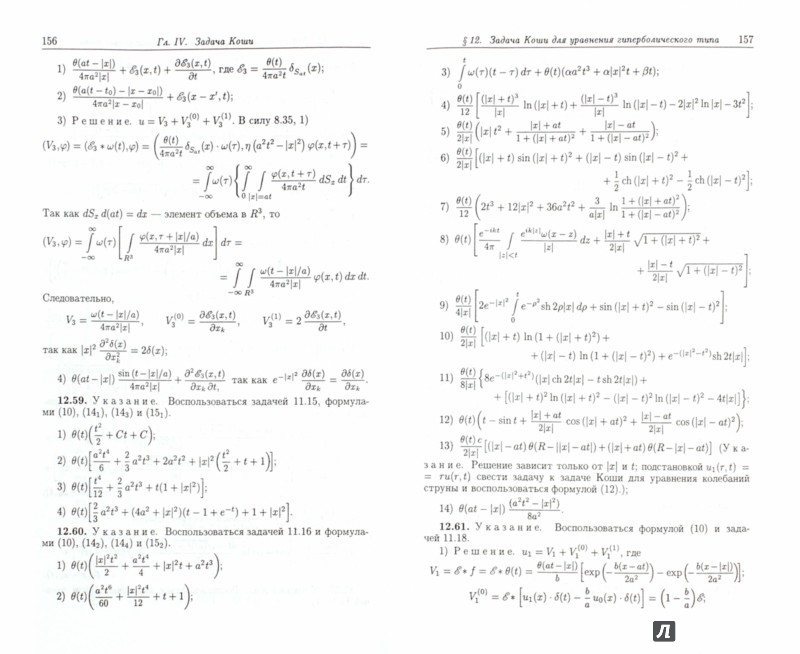 156 Гл. IV. Задача Коши
1) θ(at − |x|)/(4πa²|x|) + ℰ₃(x, t) + ∂ℰ₃(x, t)/∂t, где ℰ₃ = θ(t)/(4πa²t) δ_{S_{at}}(x);
2) θ(a(t − t₀) − |x − x₀|)/(4πa²|x − x₀|) + ℰ₃(x − x′, t);
3) Решение. u = V₃ + V₃⁽⁰⁾ + V₃⁽¹⁾. В силу 8.35, 1)
(V₃, φ) = (ℰ₃ * ω(t), φ) = (θ(t)/(4πa²t) δ_{S_{at}}(x) · ω(τ), η(a²t² − |x|²) φ(x, t + τ)) =
= ∫_{−∞}^{∞} ω(τ){∫₀^∞ ∫_{|x|=at} φ(x, t + τ)/(4πa²t) dS_x dt} dτ.
Так как dS_x d(at) = dx — элемент объема в R³, то
(V₃, φ) = ∫_{−∞}^{∞} ω(τ)[∫_{R³} φ(x, τ + |x|/a)/(4πa²|x|) dx] dτ =
= ∫_{−∞}^{∞} ∫_{R³} ω(t − |x|/a)/(4πa²|x|) φ(x, t) dx dt.
Следовательно,
V₃ = ω(t − |x|/a)/(4πa²|x|), V₃⁽⁰⁾ = ∂ℰ₃(x, t)/∂x_k, V₃⁽¹⁾ = 2 ∂ℰ₃(x, t)/∂t,
так как |x|² ∂²δ(x)/∂x_k² = 2δ(x);
4) θ(at − |x|) sin(t − |x|/a)/(4πa²|x|) + ∂²ℰ₃(x, t)/(∂x_k ∂t), так как e^{−|x|²} ∂δ(x)/∂x_k = ∂δ(x)/∂x_k.
12.59. Указание. Воспользоваться задачей 11.15, формула-
ми (10), (14₁), (14₃) и (15₁).
1) θ(t)(t²/2 + Ct + C);
2) θ(t)[a²t⁴/6 + 2/3 a²t³ + 2a²t² + |x|²(t²/2 + t + 1)];
3) θ(t)[t⁴/12 + 2/3 a²t³ + t(1 + |x|²)];
4) θ(t)[2/3 a²t³ + (4a² + |x|²)(t − 1 + e^{−t}) + 1 + |x|²].
12.60. Указание. Воспользоваться задачей 11.16 и формула-
ми (10), (14₂), (14₄) и (15₂).
1) θ(t)(|x|²t²/2 + a²t⁴/4 + |x|²t + a²t³);
2) θ(t)(a²t⁶/60 + |x|²t⁴/12 + t + 1);
§ 12. Задача Коши для уравнения гиперболического типа 157
3) ∫₀^t ω(τ)(t − τ) dτ + θ(t)(αa²t³ + α|x|²t + βt);
4) θ(t)/12 [(|x| + t)³/|x| ln(|x| + t) + (|x| − t)³/|x| ln(|x| − t) − 2|x|² ln|x| − 3t²];
5) θ(t)/(2|x|) (|x|t² + (|x| + at)/(1 + (|x| + at)²) + (|x| − at)/(1 + (|x| − at)²));
6) θ(t)/(2|x|) [(|x| + t) sin(|x| + t)² + (|x| − t) sin(|x| − t)² +
+ 1/2 ch(|x| + t)² − 1/2 ch(|x| − t)²];
7) θ(t)/12 (2t³ + 12|x|² + 36a²t² + 3/(a|x|) ln (1 + (|x| + at)²)/(1 + (|x| − at)²));
8) θ(t)[e^{−ikt}/(4π) ∫_{|z|<t} e^{ik|z|}ω(x − z)/|z| dz + (|x| + t)/(2|x|) √(1 + (|x| + t)²) +
+ (|x| − t)/(2|x|) √(1 + (|x| − t)²)];
9) θ(t)/(4|x|) [2e^{−|x|²} ∫₀^t e^{−ρ²} sh 2ρ|x| dρ + sin(|x| + t)² − sin(|x| − t)²];
10) θ(t)/(2|x|) [(|x| + t) ln(1 + (|x| + t)²) +
+ (|x| − t) ln(1 + (|x| − t)²) + e^{−(|x|²−t²)} sh 2t|x|];
11) θ(t)/(8|x|) {8e^{−(|x|²+t²)}(|x| ch 2t|x| − t sh 2t|x|) +
+ [(|x| + t)² ln(|x| + t)² − (|x| − t)² ln(|x| − t)² − 4t|x|]};
12) θ(t)(t − sin t + (|x| + at)/(2|x|) cos(|x| + at)² + (|x| − at)/(2|x|) cos(|x| − at)²);
13) θ(t)c/(2|x|) [(|x| − at)θ(R − ||x| − at|) + (|x| + at)θ(R − |x| − at)] (Ука-
зание. Решение зависит только от |x| и t; подстановкой u₁(r, t) =
= ru(r, t) свести задачу к задаче Коши для уравнения колебаний
струны и воспользоваться формулой (12).);
14) θ(at − |x|) (a²t² − |x|²)/(8a²).
12.61. Указание. Воспользоваться формулой (10) и зада-
чей 11.18.
1) Решение. u₁ = V₁ + V₁⁽⁰⁾ + V₁⁽¹⁾, где
V₁ = ℰ * f = ℰ * θ(t) = θ(at − |x|)/b [exp(−b(x − at)/(2a²)) − exp(−b(x − |x|)/(2a²))];
V₁⁽⁰⁾ = ℰ * [u₁(x) · δ(t) − b/a u₀(x) · δ(t)] = (1 − b/a)ℰ;
Л